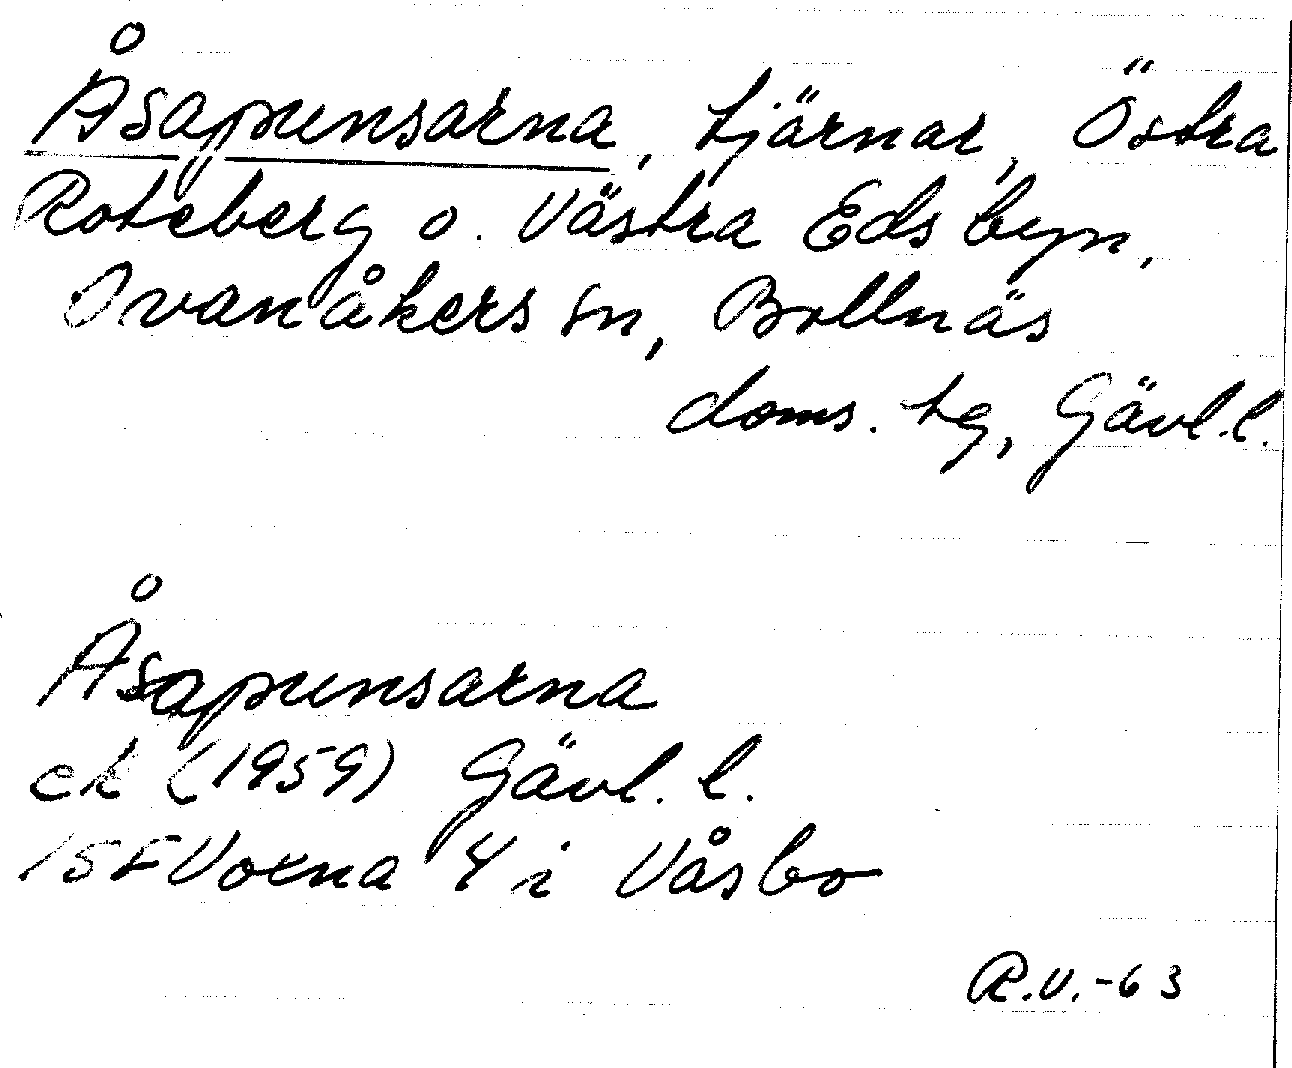 Åsapunsarna, tjärnar, Östra
Roteberg o. Västra Edsbyn,
Ovanåkers sn, Bollnäs
doms. tg, Gävl.l.
Åsapunsarna
ek (1959) Gävl. l.
15F Voxna 4 i Våsbo
R.V.-63